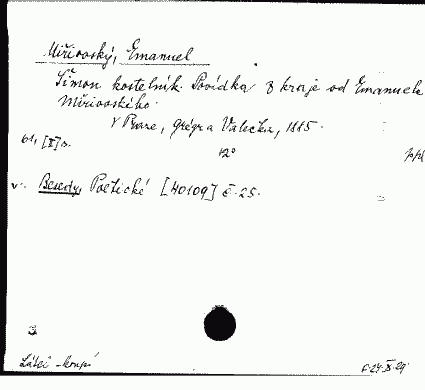 Miřiovský, Emanuel
Šimon kostelník. Povídka z kraje od Emanuela
Miřiovského.
V Praze, Grégr a Valečka, 1885.
61, [I] s.
12°
ppl
v. Besedy, Poetické [40109] č. 25.